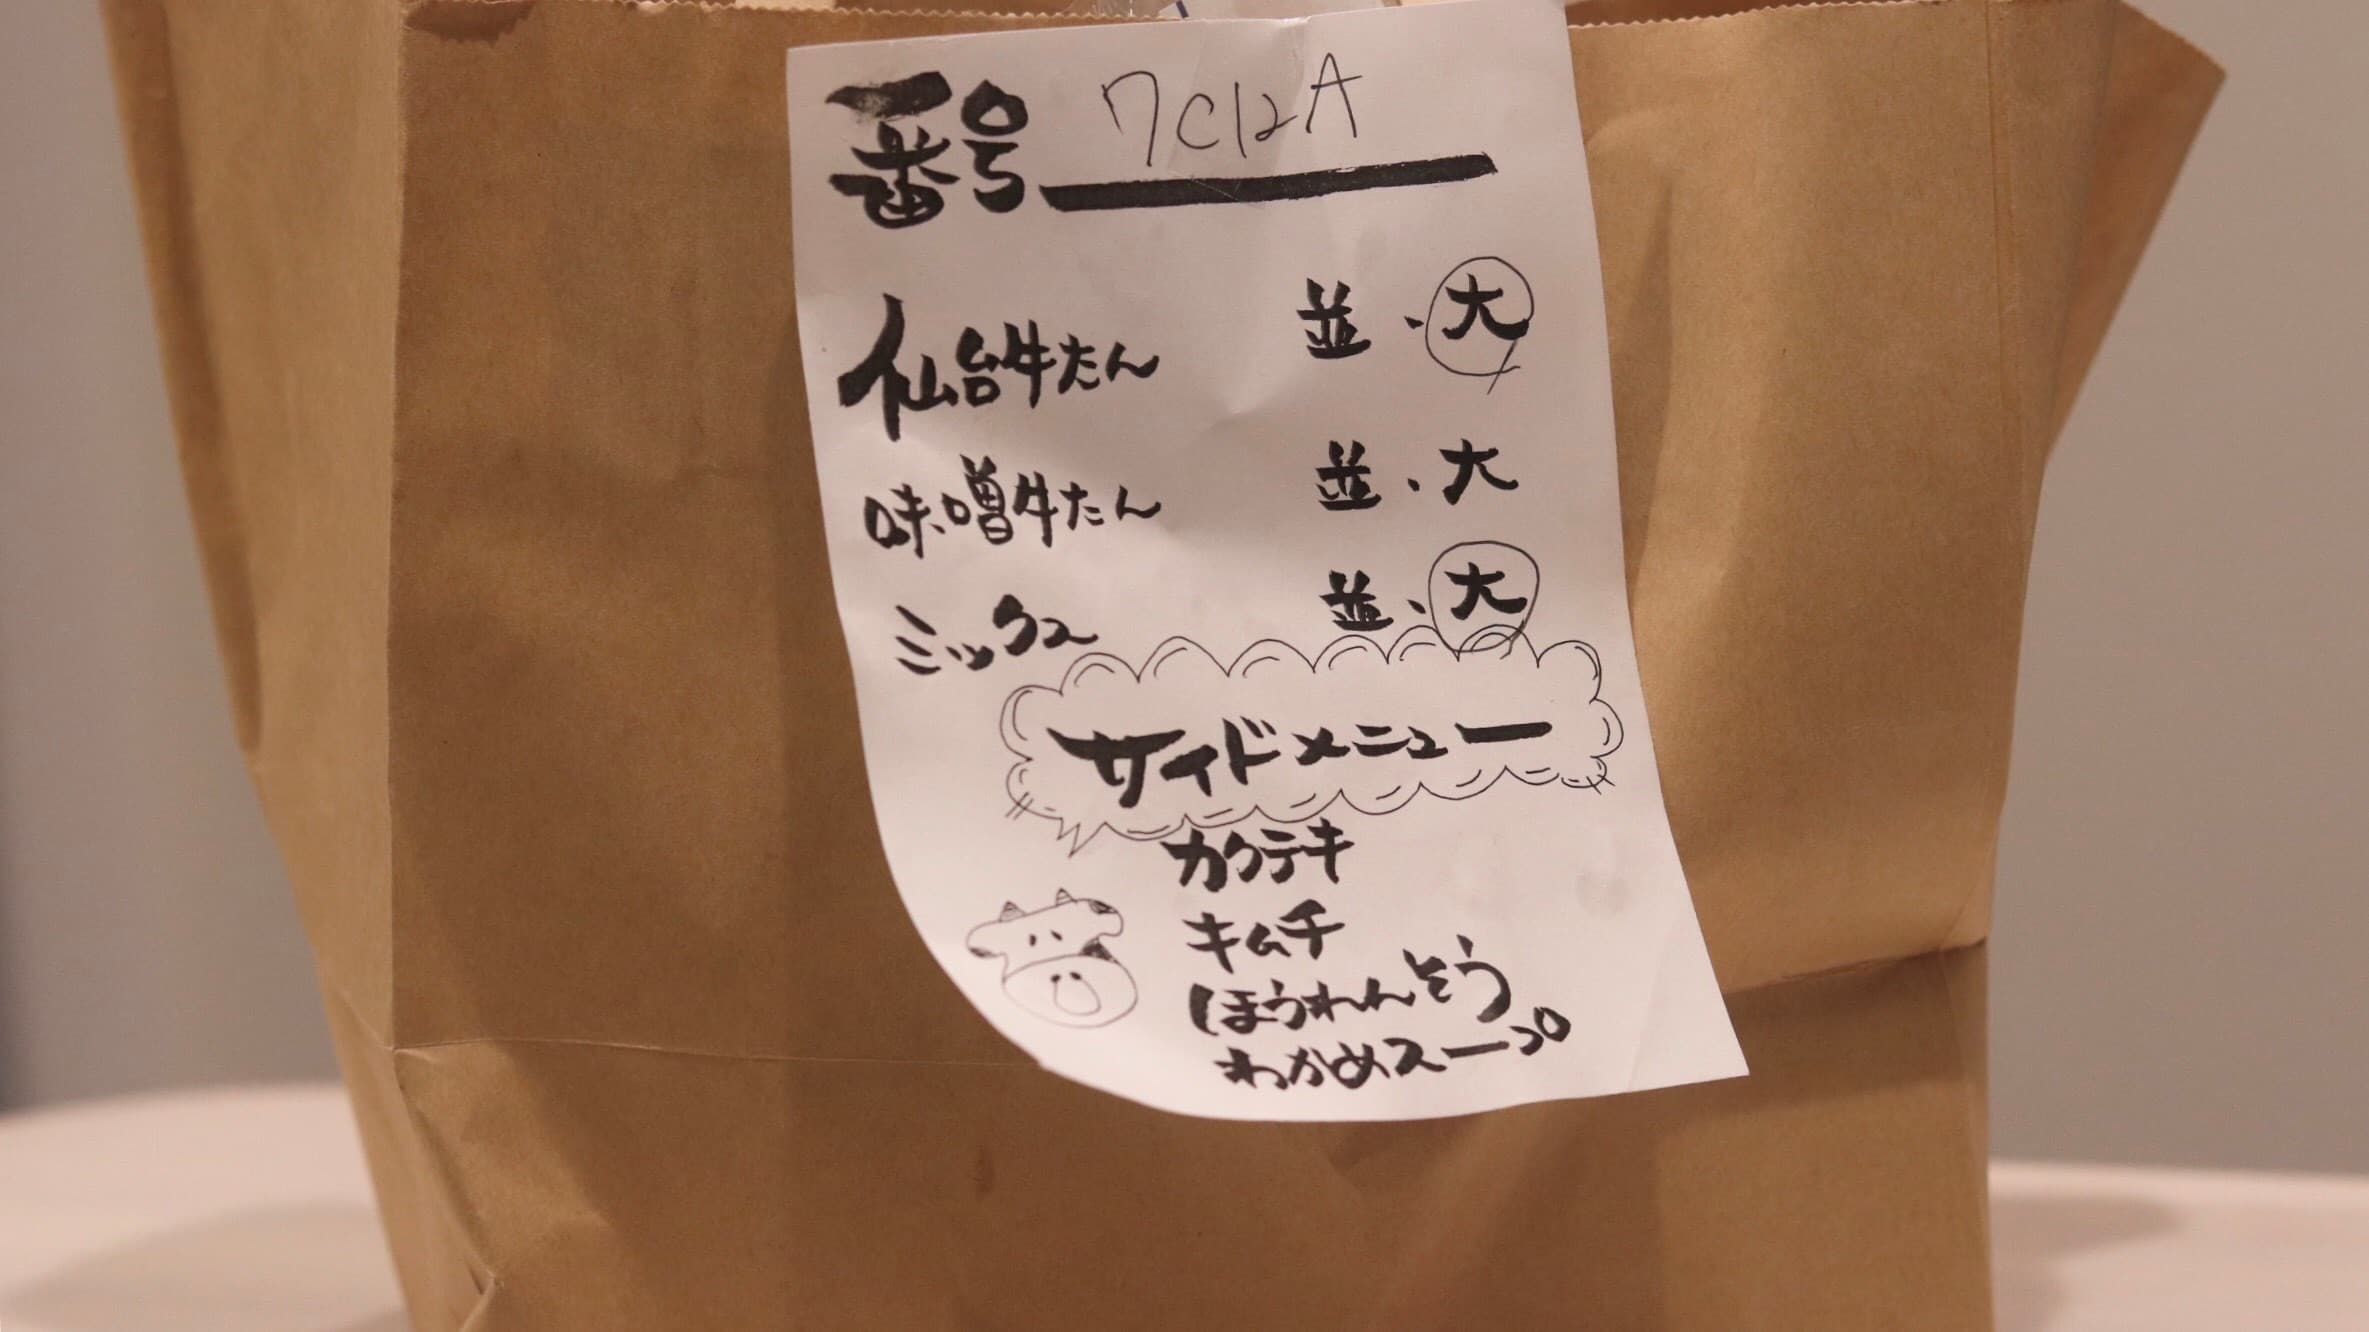 番号 7C12A
仙台牛たん 並・大
味噌牛たん 並・大
ミックス 並・大
サイドメニュー
カクテキ
キムチ
ほうれんそう
わかめスープ